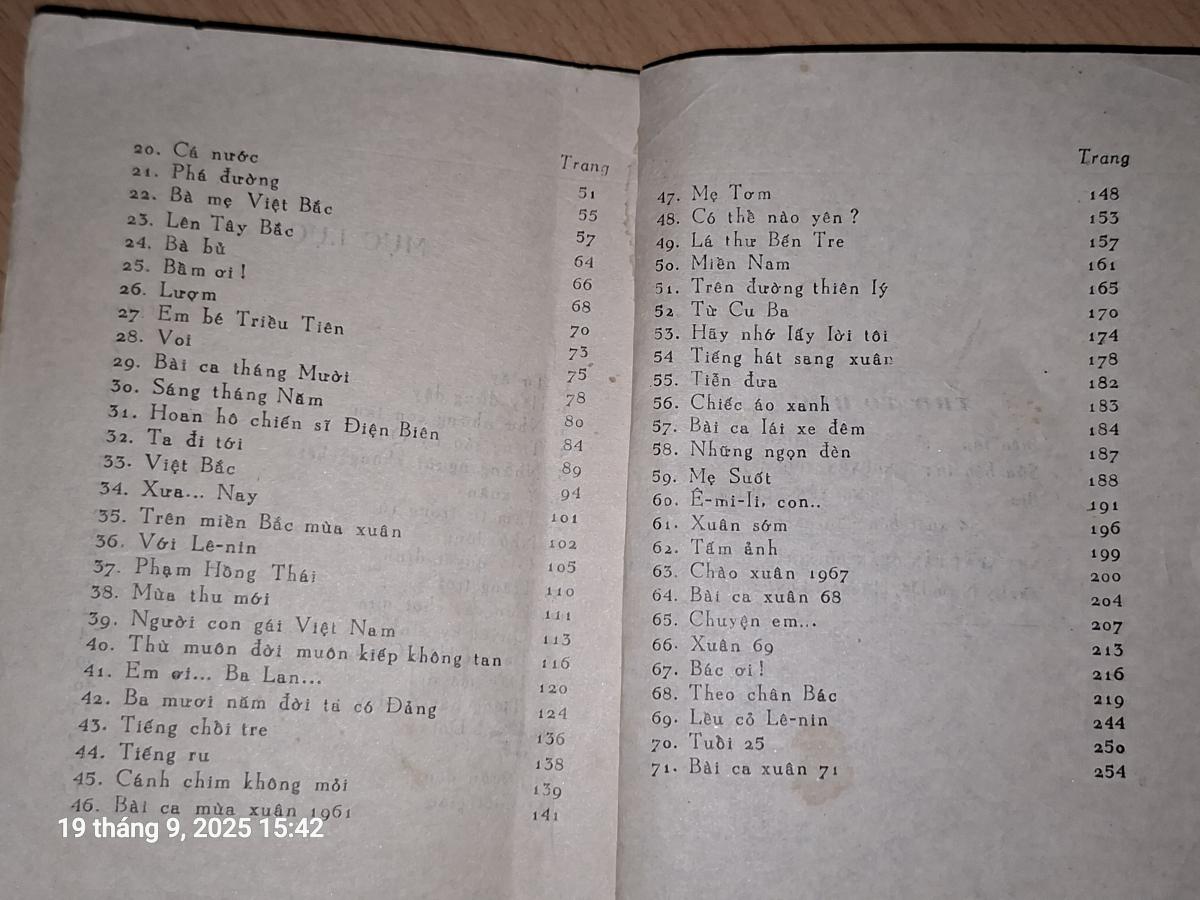 Trang
20. Cá nước 51
21. Phá đường 55
22. Bà mẹ Việt Bắc 57
23. Lên Tây Bắc 64
24. Bà bủ 66
25. Bầm ơi ! 68
26. Lượm 70
27. Em bé Triều Tiên 73
28. Voi 75
29. Bài ca tháng Mười 78
30. Sáng tháng Năm 80
31. Hoan hô chiến sĩ Điện Biên 84
32. Ta đi tới 89
33. Việt Bắc 94
34. Xưa... Nay 101
35. Trên miền Bắc mùa xuân 102
36. Với Lê-nin 105
37. Phạm Hồng Thái 110
38. Mùa thu mới 111
39. Người con gái Việt Nam 113
40. Thù muôn đời muôn kiếp không tan 116
41. Em ơi... Ba Lan... 120
42. Ba mươi năm đời ta có Đảng 124
43. Tiếng chổi tre 136
44. Tiếng ru 138
45. Cánh chim không mỏi 139
46. Bài ca mùa xuân 1961 141
Trang
47. Mẹ Tơm 148
48. Có thể nào yên ? 153
49. Lá thư Bến Tre 157
50. Miền Nam 161
51. Trên đường thiên lý 165
52 Từ Cu Ba 170
53. Hãy nhớ lấy lời tôi 174
54 Tiếng hát sang xuân 178
55. Tiễn đưa 182
56. Chiếc áo xanh 183
57. Bài ca lái xe đêm 184
58. Những ngọn đèn 187
59. Mẹ Suốt 188
60. Ê-mi-li, con.. 191
61. Xuân sớm 196
62. Tấm ảnh 199
63. Chào xuân 1967 200
64. Bài ca xuân 68 204
65. Chuyện em... 207
66. Xuân 69 213
67. Bác ơi ! 216
68. Theo chân Bác 219
69. Lều cỏ Lê-nin 244
70. Tuổi 25 250
71. Bài ca xuân 71 254
19 tháng 9, 2025 15:42